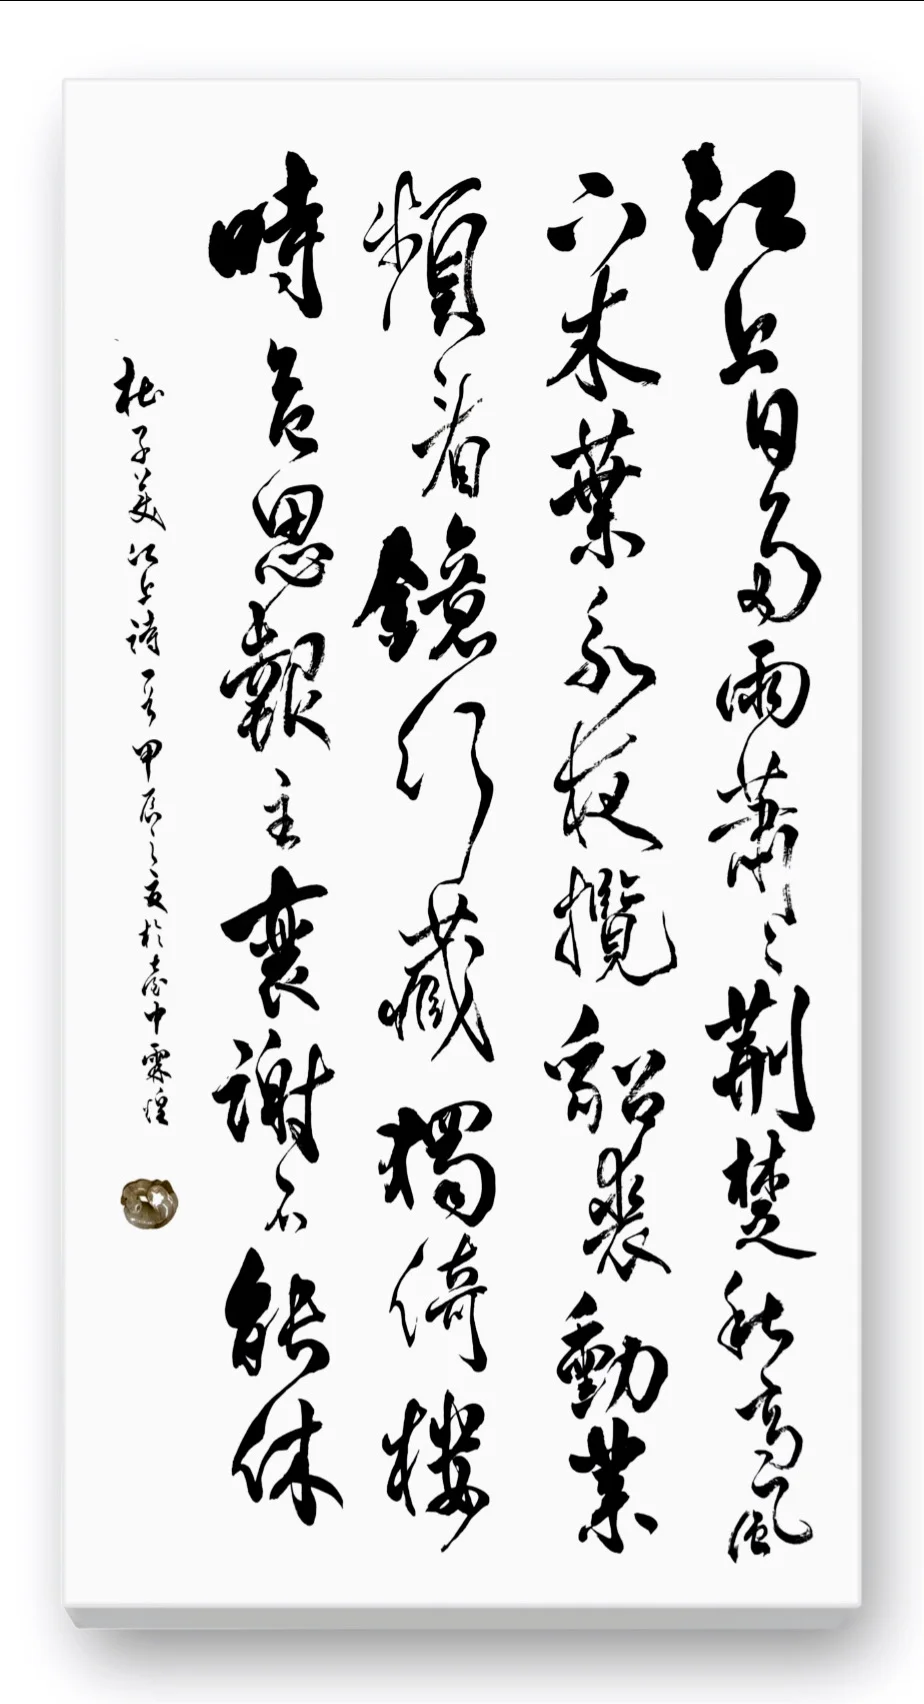 江上日多雨蕭〻荊楚秋高風
下木葉永夜攬貂裘勳業
頻看鏡行藏獨倚樓
時危思報主衰謝不能休
杜子美江上詩一首甲辰之夏於臺中霖煌